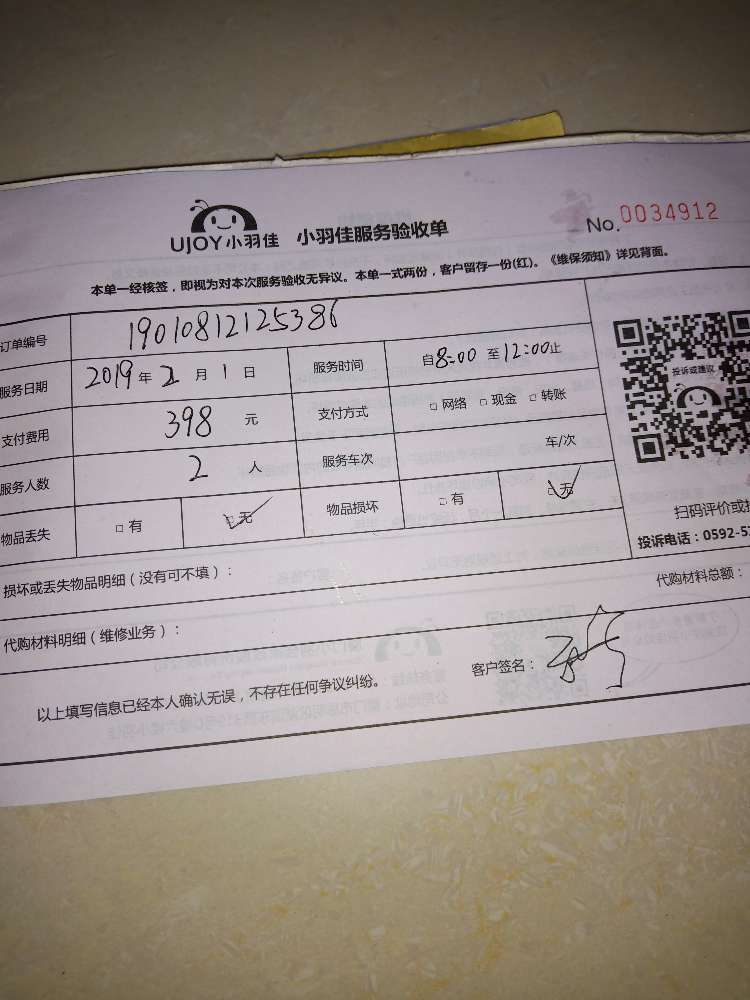 UJOY小羽佳 小羽佳服务验收单 No.0034912
本单一经核签，即视为对本次服务验收无异议。本单一式两份，客户留存一份(红)。《维保须知》详见背面。
订单编号 19010812125386
服务日期 2019年2月1日 服务时间 自8:00至12:00止
支付费用 398元 支付方式 □网络 □现金 □转账
服务人数 2人 服务车次 车/次
物品丢失 □有 □无 物品损坏 □有 □无
投诉或建议
扫码评价或
投诉电话：0592-5
损坏或丢失物品明细（没有可不填）：
代购材料明细（维修业务）： 代购材料总额：
以上填写信息已经本人确认无误，不存在任何争议纠纷。 客户签名：